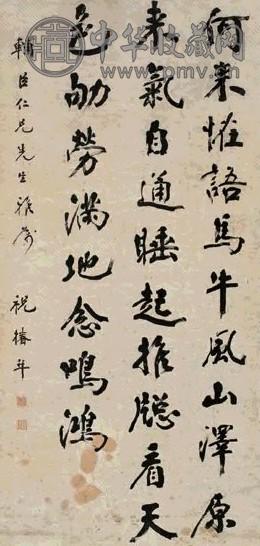 何來恠語馬牛風山澤原
來氣自通睡起推牕看天
色劬勞滿地念鳴鴻
輔臣仁兄先生雅屬
祝椿年
中华收藏网
www.pmv.cn